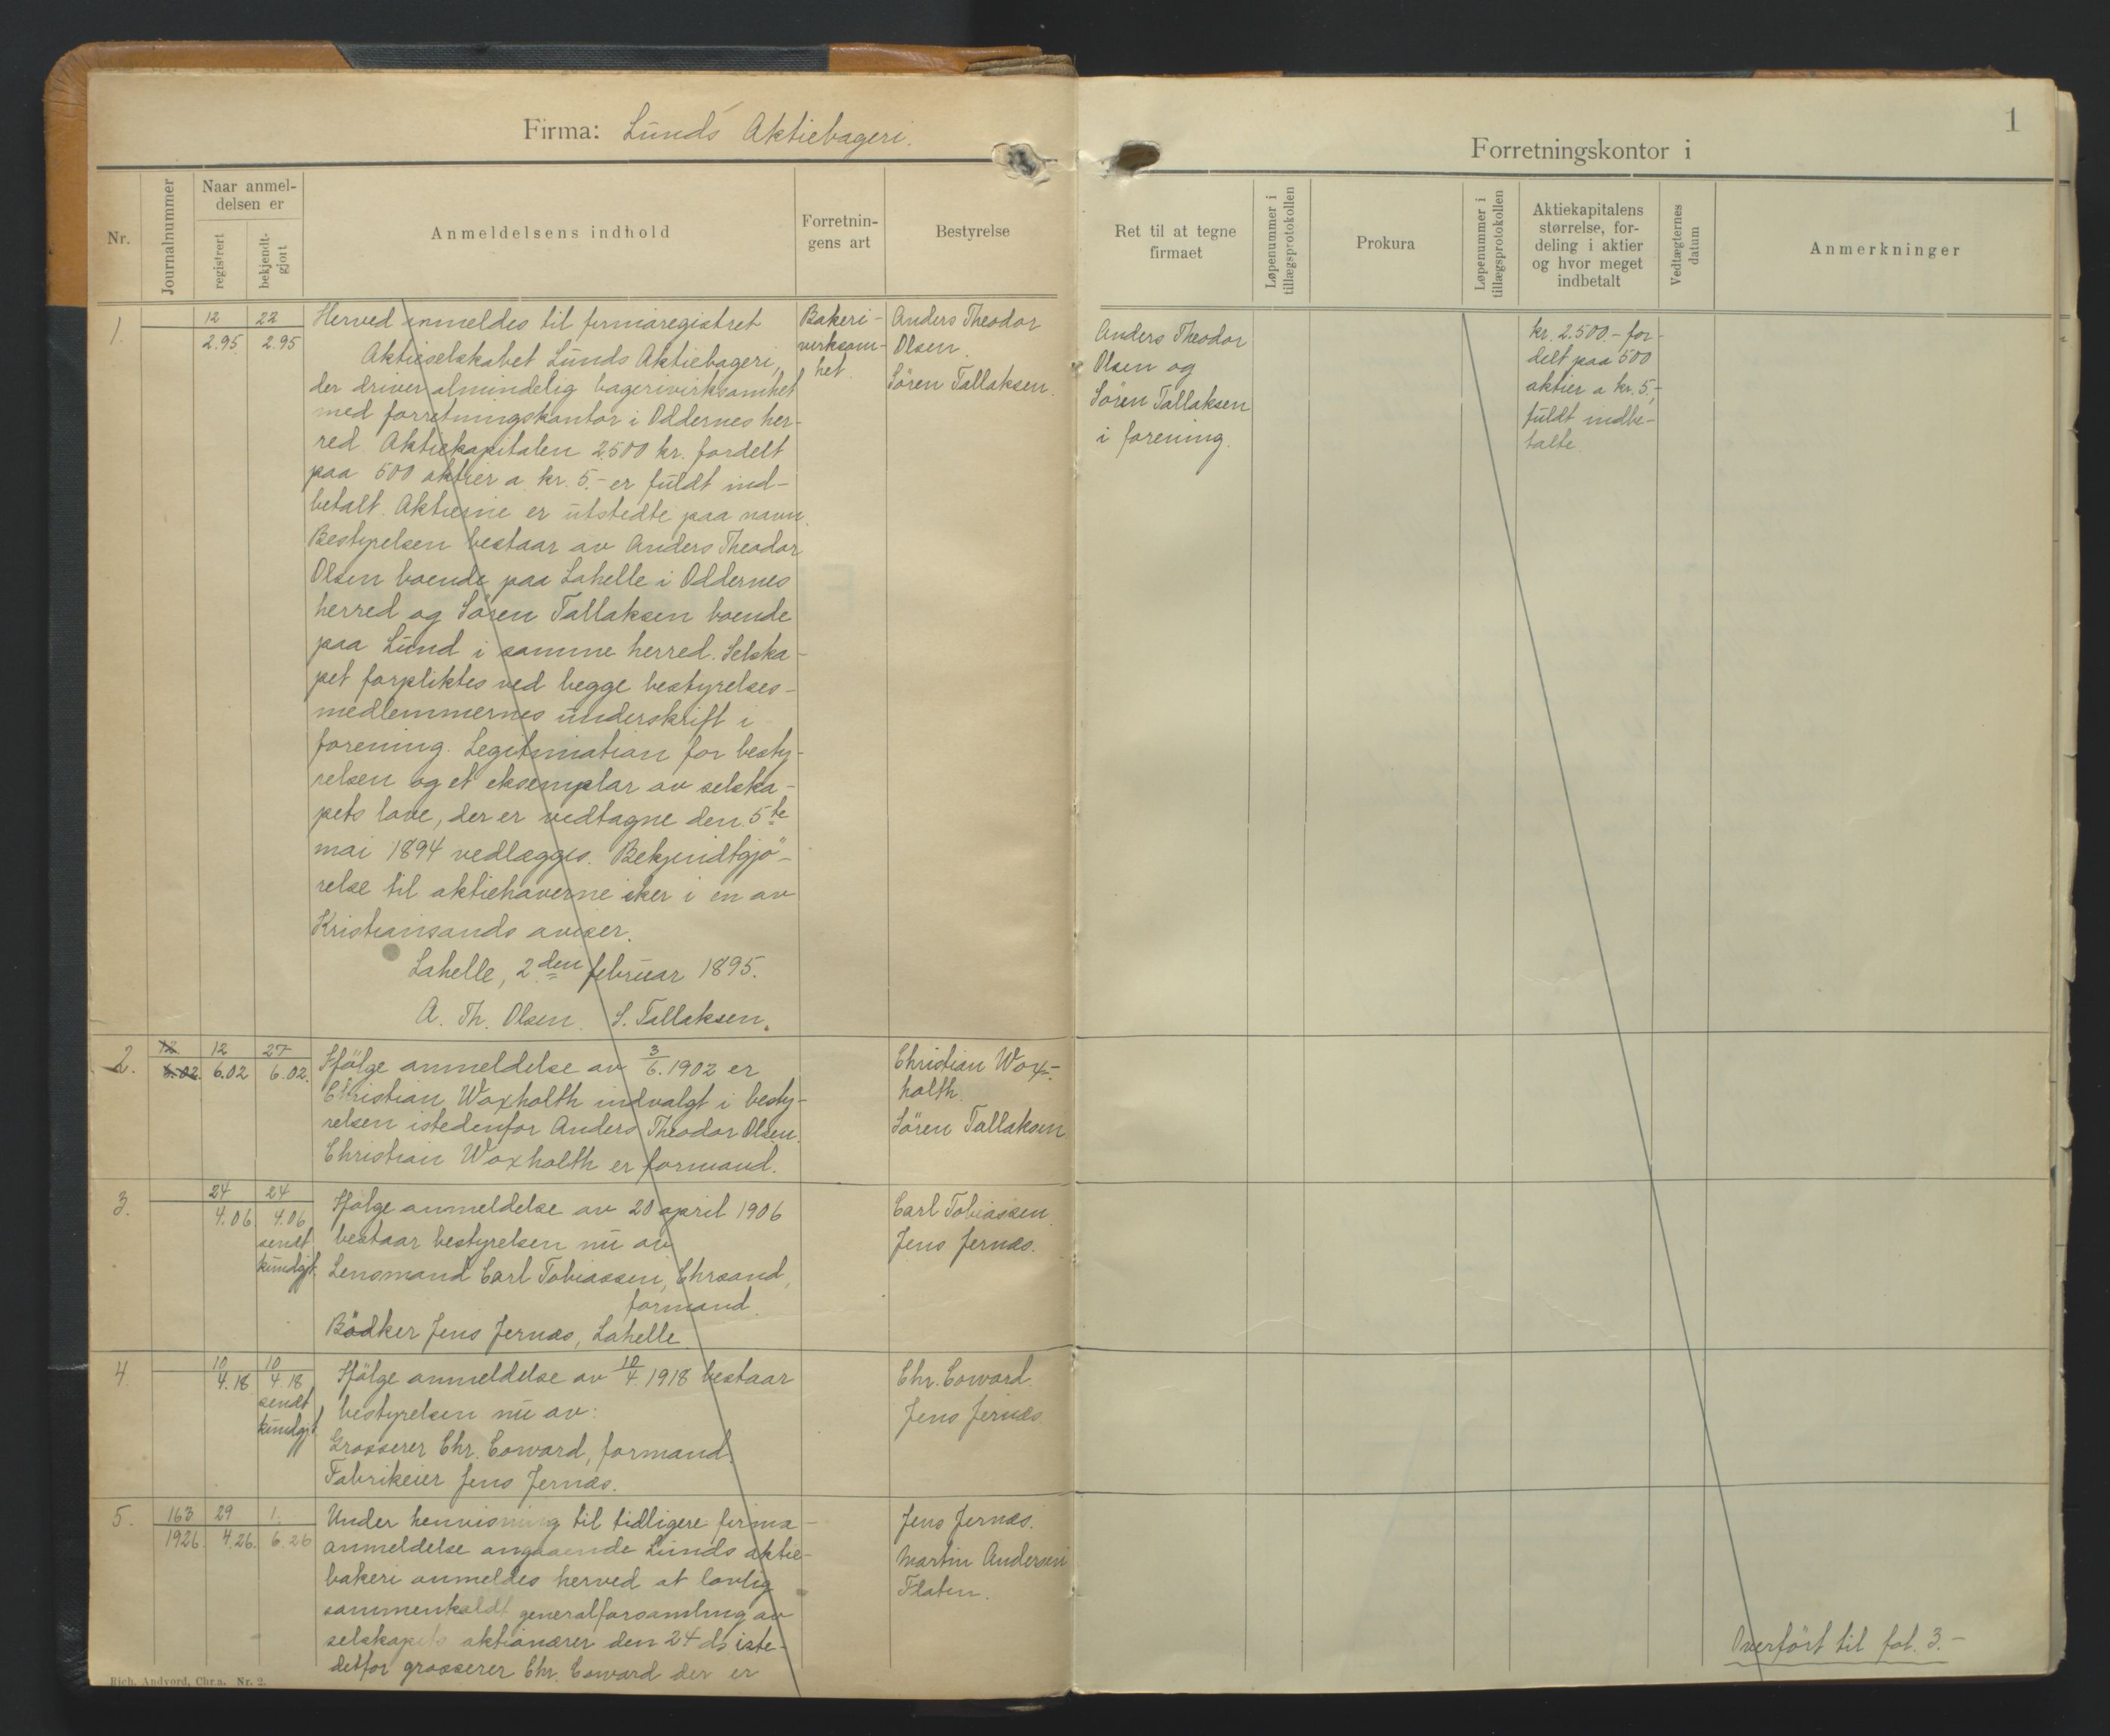 Firma: Lunds Aktiebageri.
Nr.
Journalnummer
Naar anmel-
delsen er
registrert
bekjendt-
gjort
Anmeldelsens indhold
Forretnin-
gens art
Bestyrelse
1.
12
2.95
22
2.95
Herved anmeldes til firmaregistret
Aktieselskabet Lunds Aktiebageri,
der driver almindelig bagerivirksomhet
med forretningskontor i Oddernes her-
red Aktiekapitalen 2500 kr. fordelt
paa 500 aktier a kr. 5.- er fuldt ind-
betalt. Aktierne er utstedte paa navn.
Bestyrelsen bestaar av Anders Theodor
Olsen boende paa Lahelle i Oddernes
herred og Sören Tallaksen boende
paa Lund i samme herred. Selska-
pet forpliktes ved begge bestyrelses-
medlemmernes underskrift i
forening. Legitimation for besty-
relsen og et eksemplar av selska-
pets love, der er vedtagne den 5te
mai 1894 vedlægges. Bekjendtgjö-
relse til aktiehaverne sker i en av
Kristiansands aviser.
Lahelle, 2den februar 1895.
A. Th. Olsen. S. Tallaksen.
Bakeri-
virksom-
het.
Anders Theodor
Olsen.
Sören Tallaksen.
2.
12
6.02.
12
6.02
27
6.02.
Ifölge anmeldelse av 3/6. 1902 er
Christian Woxholth indvalgt i besty-
relsen istedenfor Anders Theodor Olsen.
Christian Woxholth er formand.
Christian Wox-
holth.
Sören Tallaksen
3.
24
4.06
24
4.06
sendt
kundgjt.
Ifölge anmeldelse av 20 april 1906
bestaar bestyrelsen nu av
Lensmand Carl Tobiassen, Chrsand,
formand.
Bödker Jens Jernæs, Lahelle.
Carl Tobiassen.
Jens Jernæs.
4.
10
4.18
10
4.18
sendt
kundgjt.
Ifölge anmeldelse av 10/4. 1918 bestaar
bestyrelsen nu av:
Grosserer Chr. Coward, formand.
Fabrikeier Jens Jernæs.
Chr. Coward.
Jens Jernæs.
5.
163
1926.
29
4.26.
1.
6.26
Under henvisning til tidligere firma-
anmeldelse angaaende Lunds aktie-
bakeri anmeldes herved at lovlig
sammenkaldt generalforsamling av
selskapets aktionærer den 24 ds iste-
detfor grosserer Chr. Coward der er
Jens Jernæs.
Martin Andersen
Flaten.
Rich. Andvord, Chr.a. Nr. 2.
1
Forretningskontor i
Ret til at tegne
firmaet
Løpenummer i
tillægsprotokollen
Prokura
Løpenummer i
tillægsprotokollen
Aktiekapitalens
størrelse, for-
deling i aktier
og hvor meget
indbetalt
Vedtægternes
datum
Anmerkninger
Anders Theodor
Olsen og
Sören Tallaksen
i forening.
kr. 2.500.- for-
delt paa 500
aktier a kr. 5,-
fuldt indbe-
talte.
Overfört til fol. 3.-